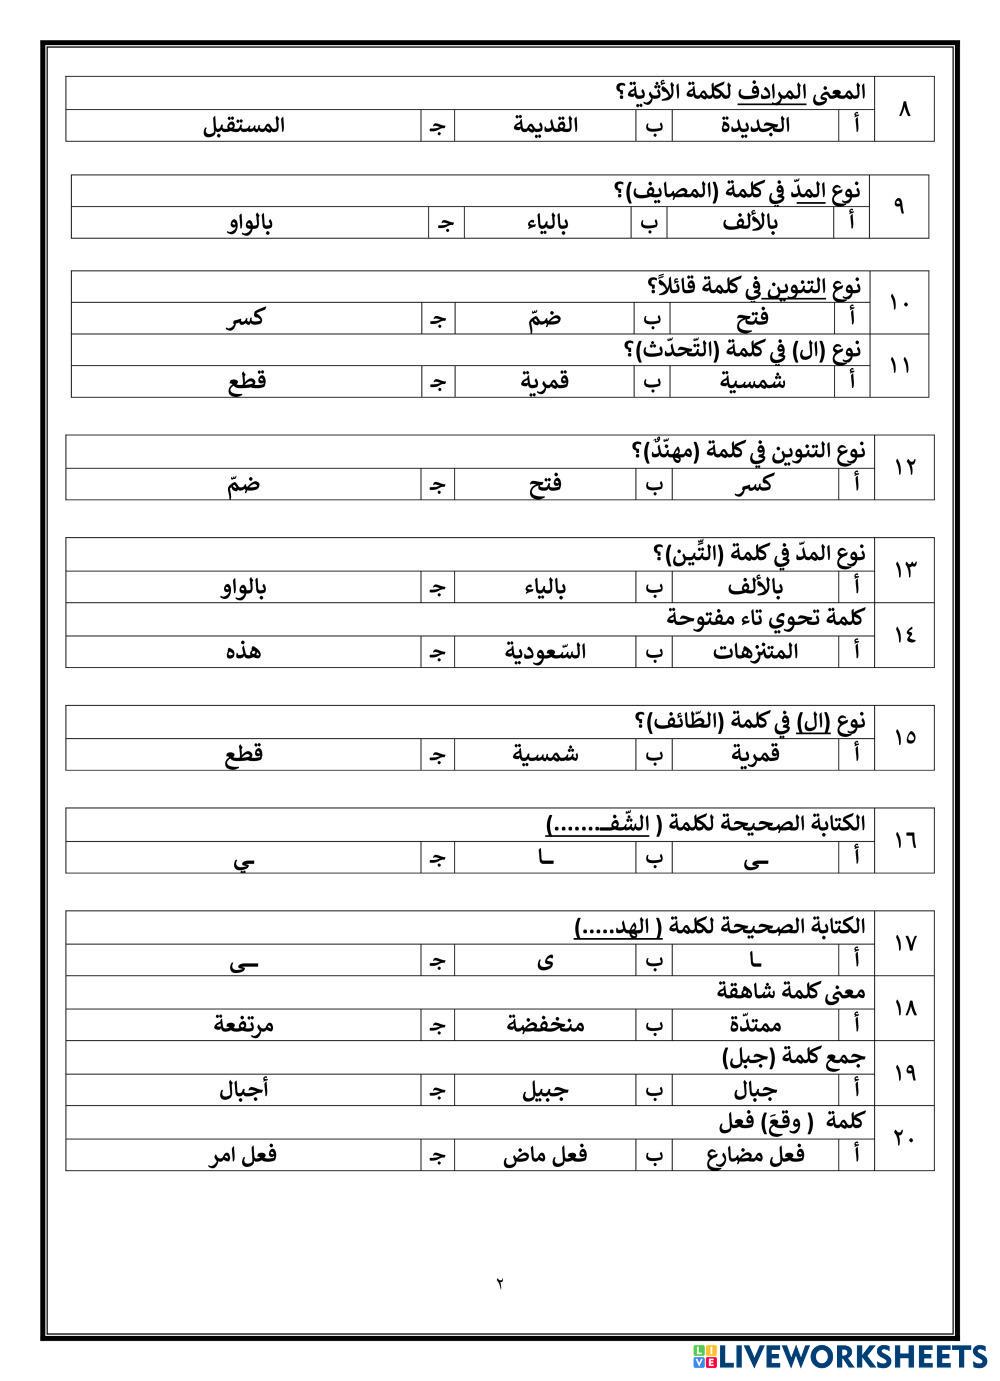 ٨ المعنى المرادف لكلمة الأثرية؟
أ الجديدة ب القديمة جـ المستقبل
٩ نوع المدّ في كلمة (المصايف)؟
أ بالألف ب بالياء جـ بالواو
١٠ نوع التنوين في كلمة قائلاً؟
أ فتح ب ضمّ جـ كسر
١١ نوع (ال) في كلمة (التّحدّث)؟
أ شمسية ب قمرية جـ قطع
١٢ نوع التنوين في كلمة (مهنّدٌ)؟
أ كسر ب فتح جـ ضمّ
١٣ نوع المدّ في كلمة (التِّين)؟
أ بالألف ب بالياء جـ بالواو
١٤ كلمة تحوي تاء مفتوحة
أ المتنزهات ب السّعودية جـ هذه
١٥ نوع (ال) في كلمة (الطّائف)؟
أ قمرية ب شمسية جـ قطع
١٦ الكتابة الصحيحة لكلمة ( الشّفـ.......)
أ ـى ب ـا جـ ـي
١٧ الكتابة الصحيحة لكلمة ( الهد.....)
أ ـا ب ى جـ ـى
١٨ معنى كلمة شاهقة
أ ممتدّة ب منخفضة جـ مرتفعة
١٩ جمع كلمة (جبل)
أ جبال ب جبيل جـ أجبال
٢٠ كلمة ( وقعَ) فعل
أ فعل مضارع ب فعل ماض جـ فعل امر
٢
LIVE LIVEWORKSHEETS